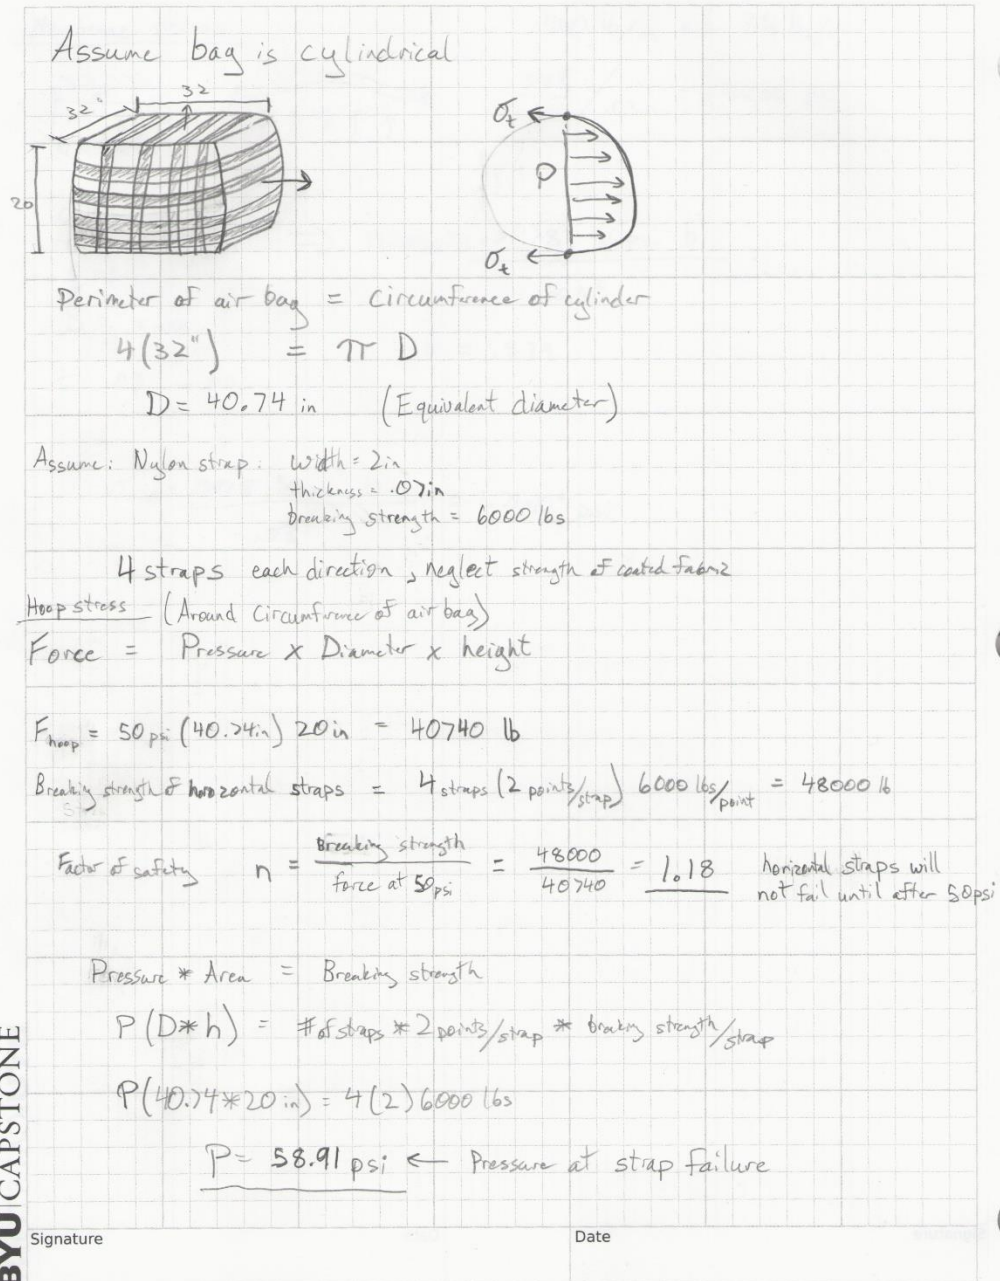 Assume bag is cylindrical
32" 32
20
σt
P
σt
Perimeter of air bag = Circumference of cylinder
4(32") = π D
D = 40.74 in (Equivalent diameter)
Assume: Nylon strap: width = 2in
thickness = .07in
breaking strength = 6000 lbs
4 straps each direction, neglect strength of coated fabric
Hoop stress (Around Circumference of air bag)
Force = Pressure x Diameter x height
Fhoop = 50 psi (40.74in) 20 in = 40740 lb
Breaking strength of horizontal straps = 4 straps (2 points/strap) 6000 lbs/point = 48000 lb
Factor of safety n = Breaking strength / force at 50psi = 48000 / 40740 = 1.18 horizontal straps will
not fail until after 50psi
Pressure * Area = Breaking strength
P(D*h) = # of straps * 2 points/strap * breaking strength/strap
P(40.74*20 in) = 4(2) 6000 lbs
P = 58.91 psi ← Pressure at strap failure
BYU|CAPSTONE
Signature Date